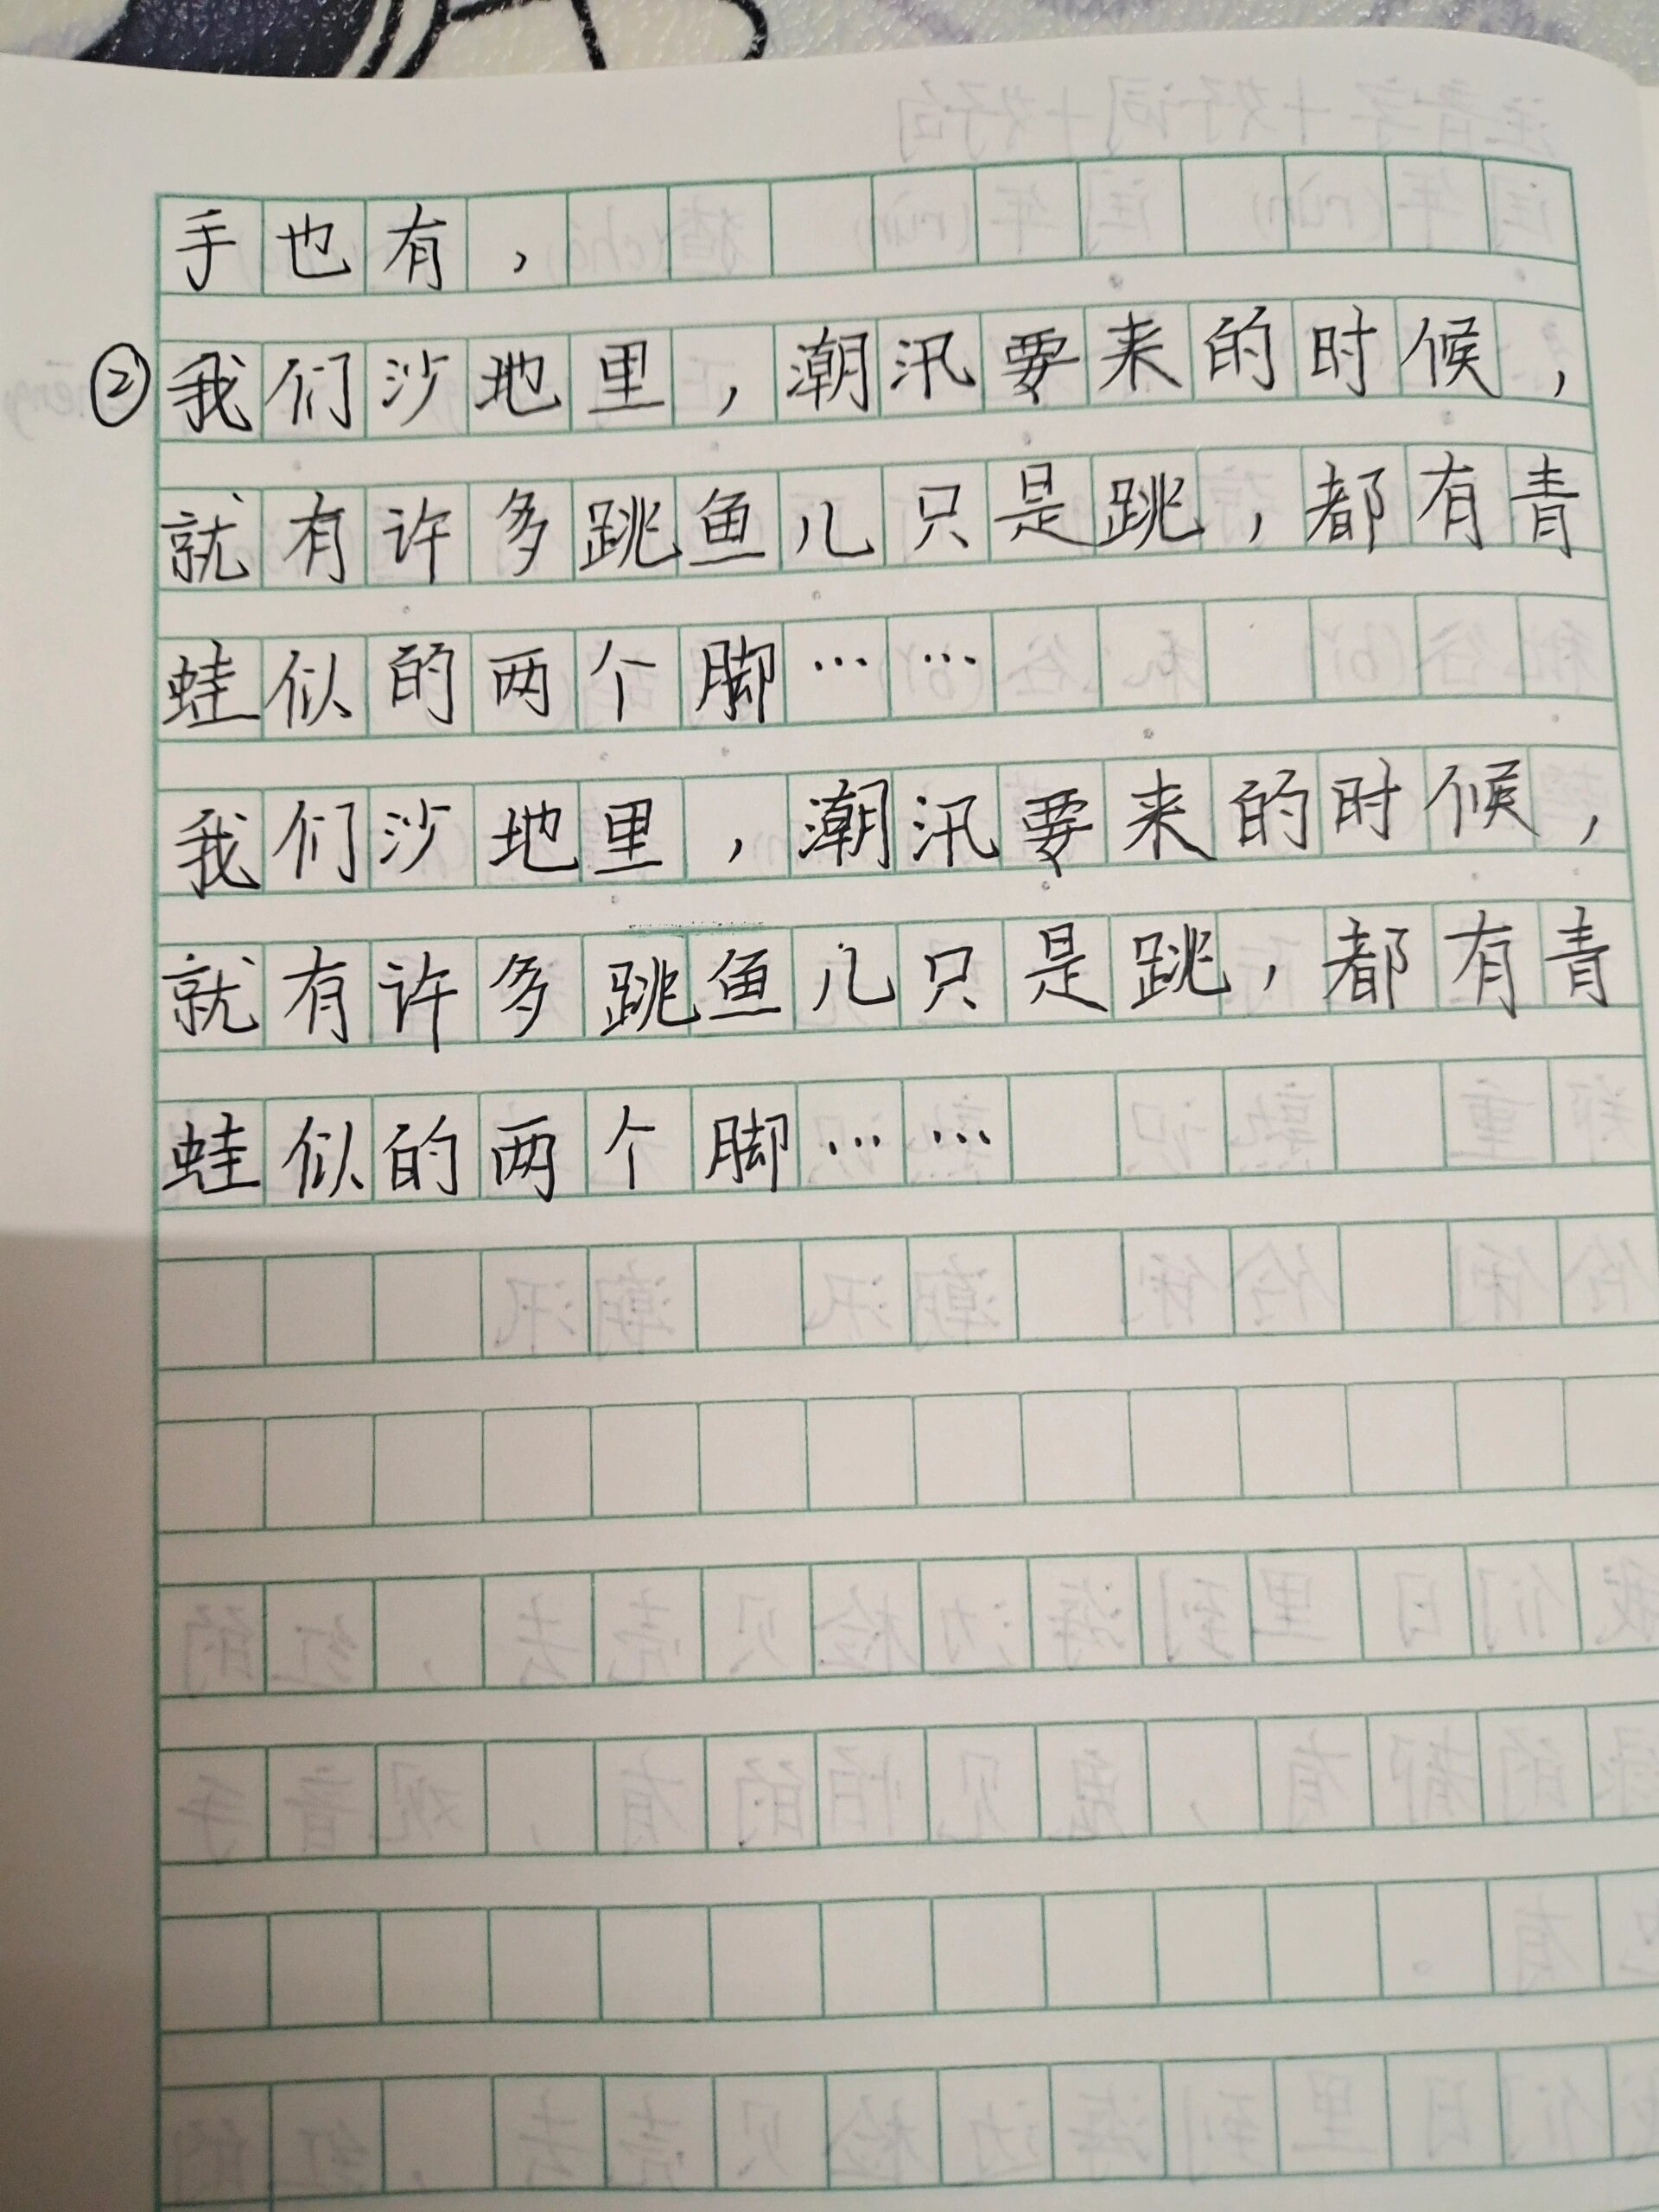 手也有，
②我们沙地里，潮汛要来的时候，
就有许多跳鱼儿只是跳，都有青
蛙似的两个脚……
我们沙地里，潮汛要来的时候，
就有许多跳鱼儿只是跳，都有青
蛙似的两个脚……